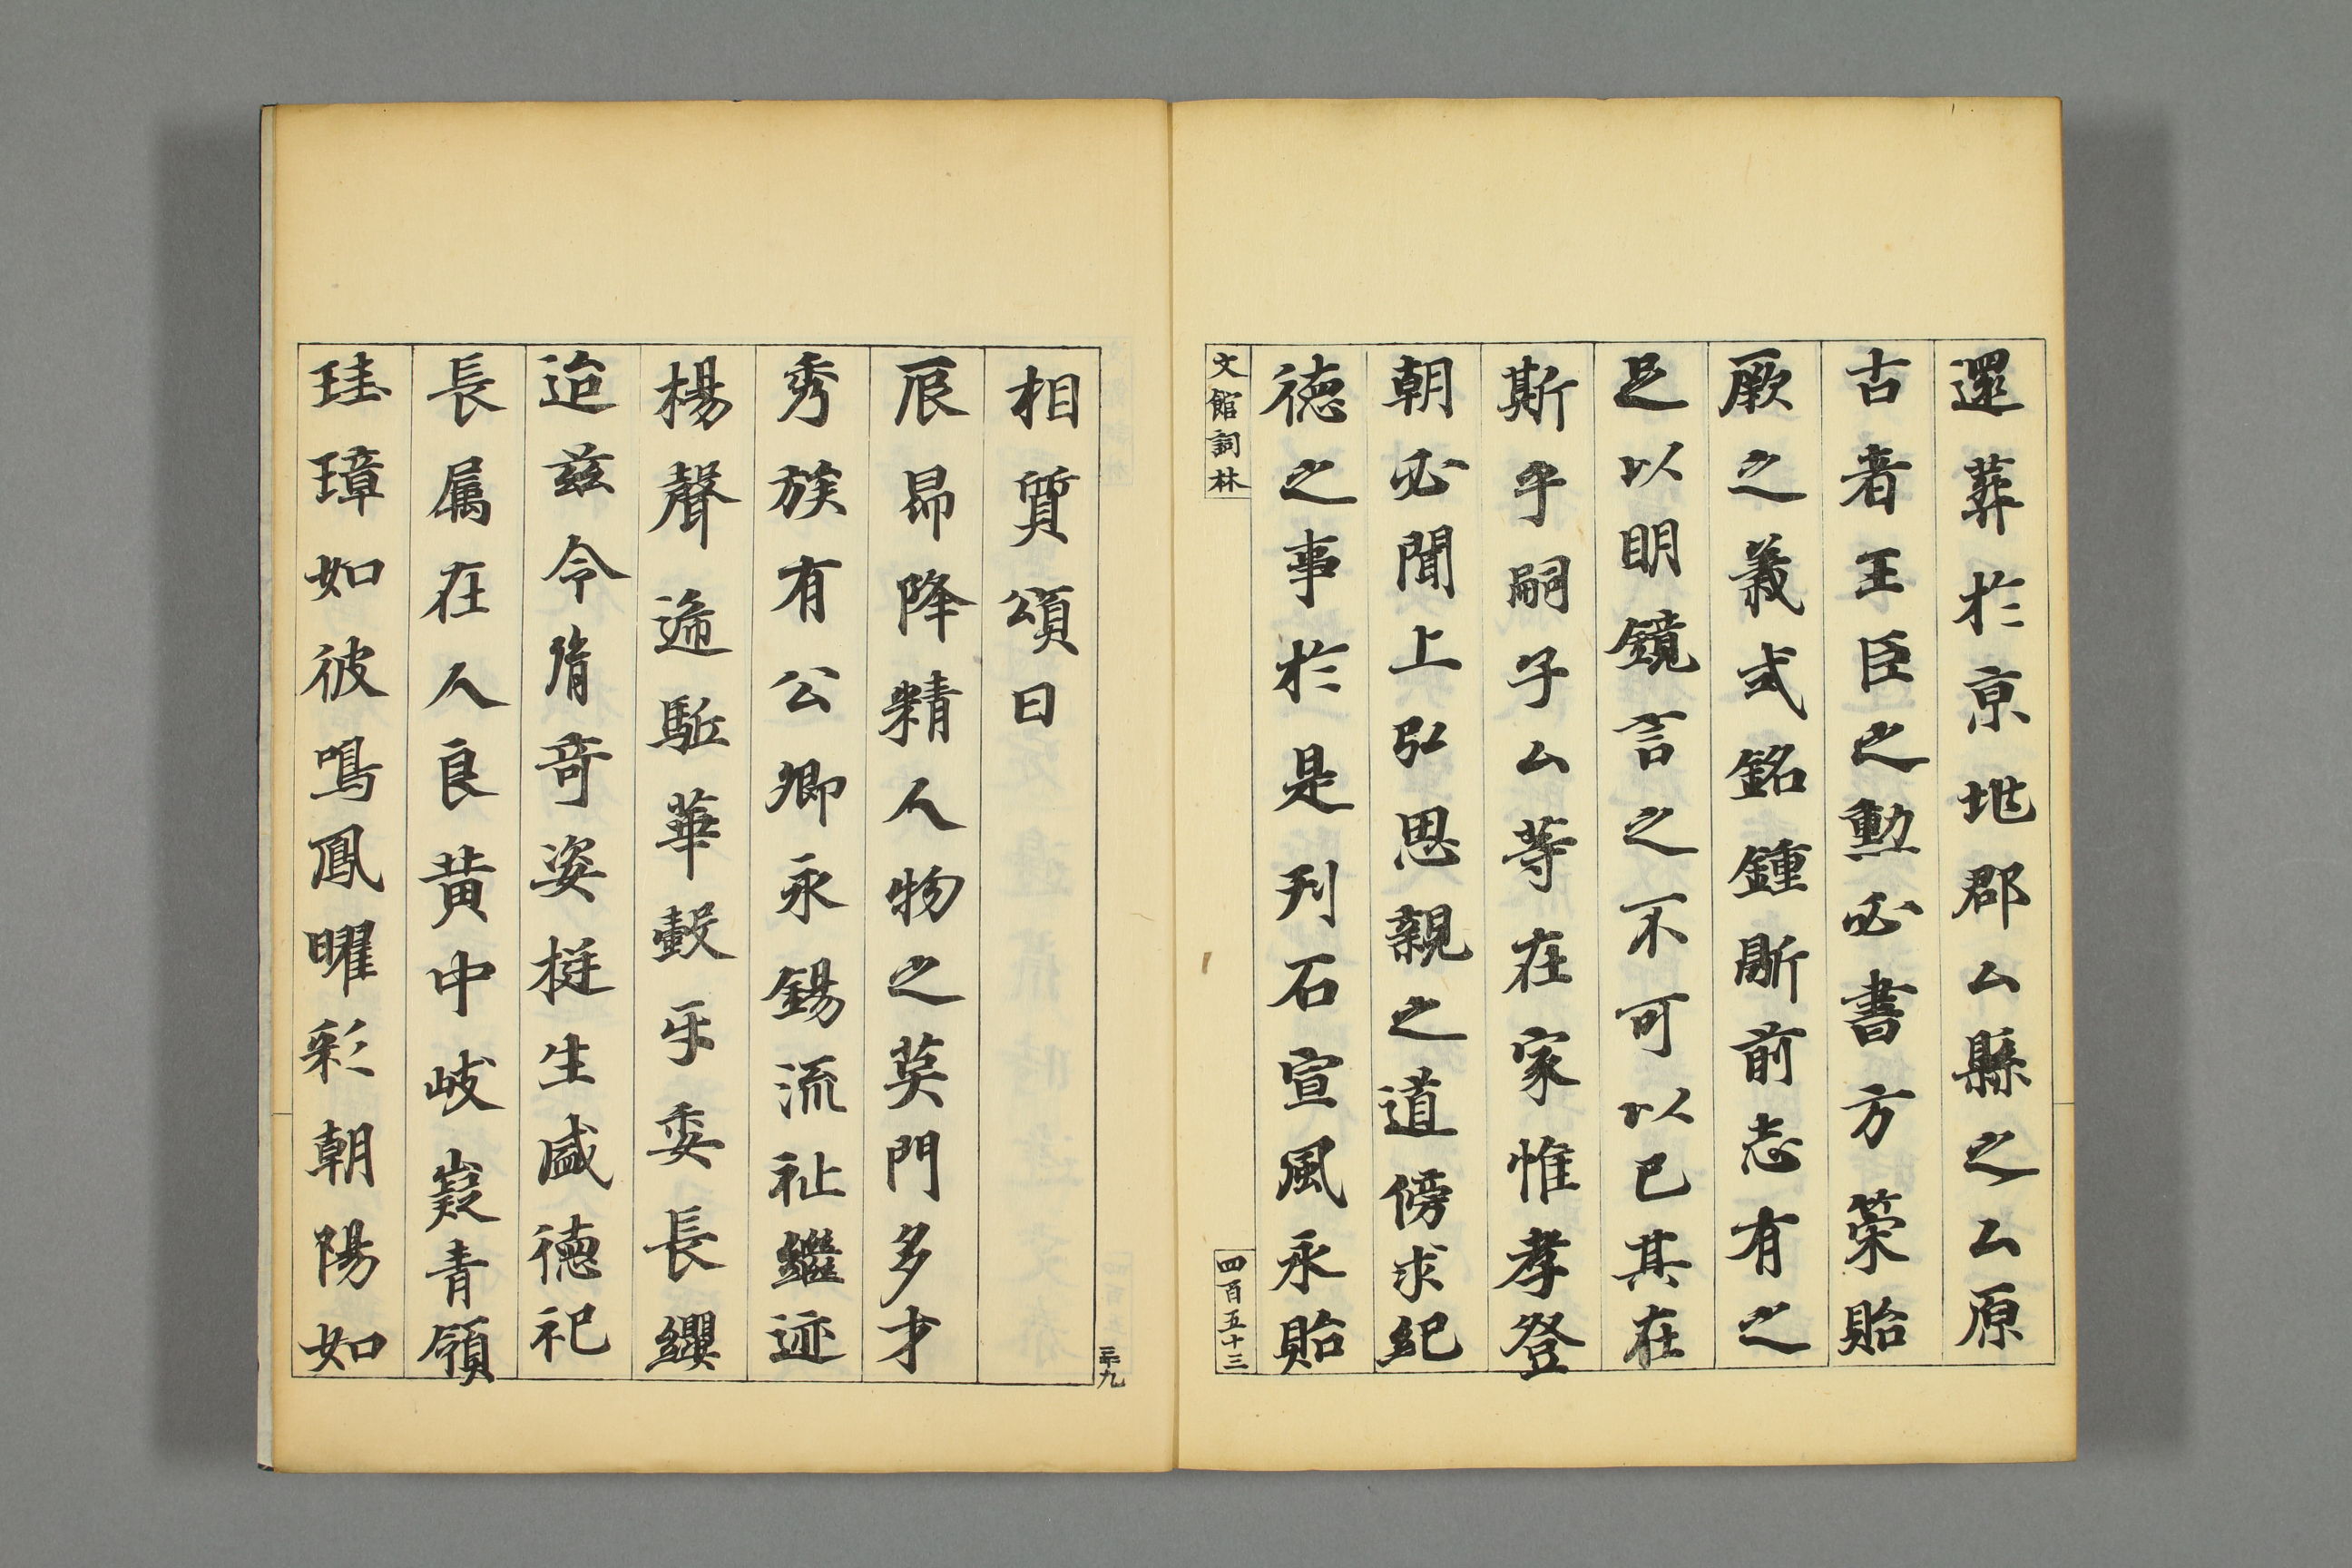 還葬於京地郡厶縣之厶原
古者王臣之勲必書方榮貽
厥之義式銘鍾斯前志有之
足以明鏡言之不可以已其在
斯乎嗣子厶等在家惟孝登
朝必聞上弘恩親之道傍求紀
德之事於是刋石宣風永貽
文館詞林
四百五十三
三十九
相質頌曰
辰昴降精人物之英門多才
秀族有公卿永錫流祉繼迹
楊聲遞駈華轂乎委長纓
迨兹令胤奇姿挺生盛德祀
長属在人良黄中岐嶷青領
珪璋如彼鳴鳳曜彩朝陽如